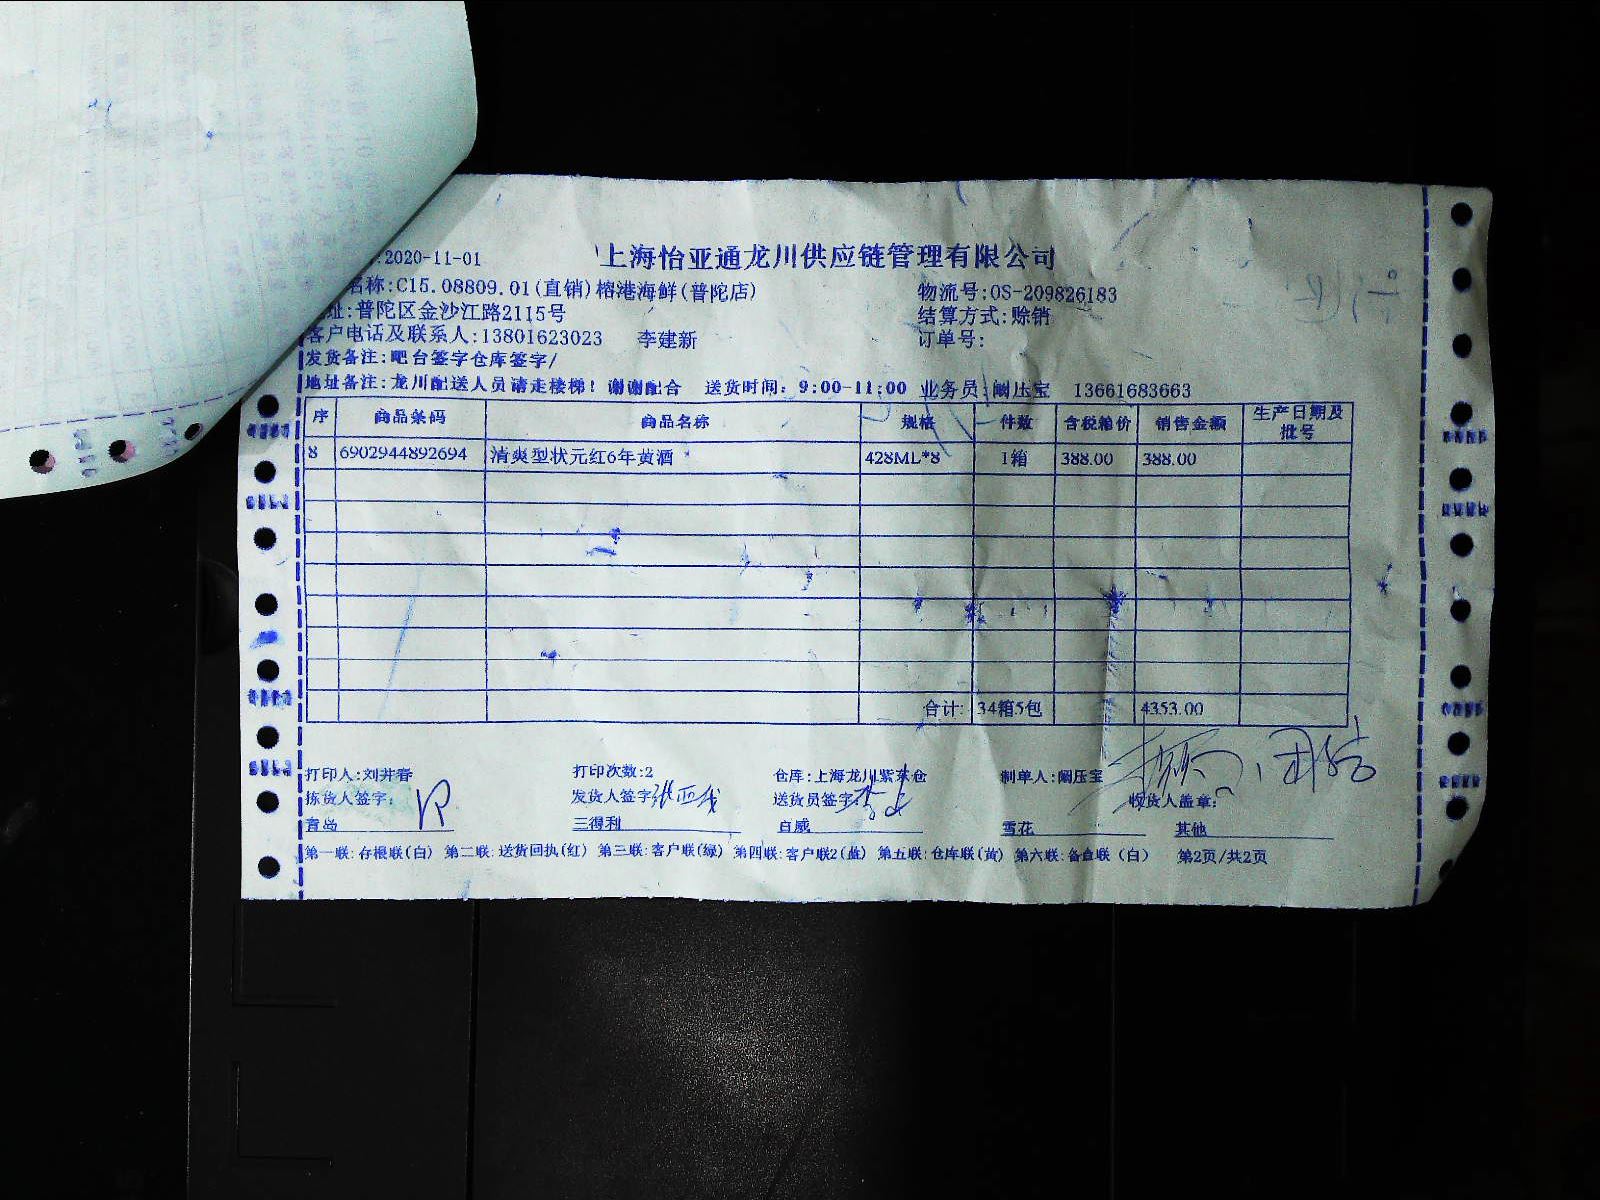 :2020-11-01 上海怡亚通龙川供应链管理有限公司
名称:C15.08809.01(直销)榕港海鲜(普陀店) 物流号:OS-209826183
址:普陀区金沙江路2115号 结算方式:赊销
客户电话及联系人:13801623023 李建新 订单号:
发货备注:吧台签字仓库签字/
地址备注:龙川配送人员请走楼梯!谢谢配合 送货时间:9:00-11:00 业务员:阚压宝 13661683663
序 商品条码 商品名称 规格 件数 含税箱价 销售金额 生产日期及批号
8 6902944892694 清爽型状元红6年黄酒 428ML*8 1箱 388.00 388.00
合计: 34箱5包 4353.00
打印人:刘井春 打印次数:2 仓库:上海龙川紫东仓 制单人:阚压宝
拣货人签字: 发货人签字: 送货员签字: 收货人盖章:
青岛 三得利 百威 雪花 其他
第一联:存根联(白) 第二联:送货回执(红) 第三联:客户联(绿) 第四联:客户联2(蓝) 第五联:仓库联(黄) 第六联:备查联(白) 第2页/共2页